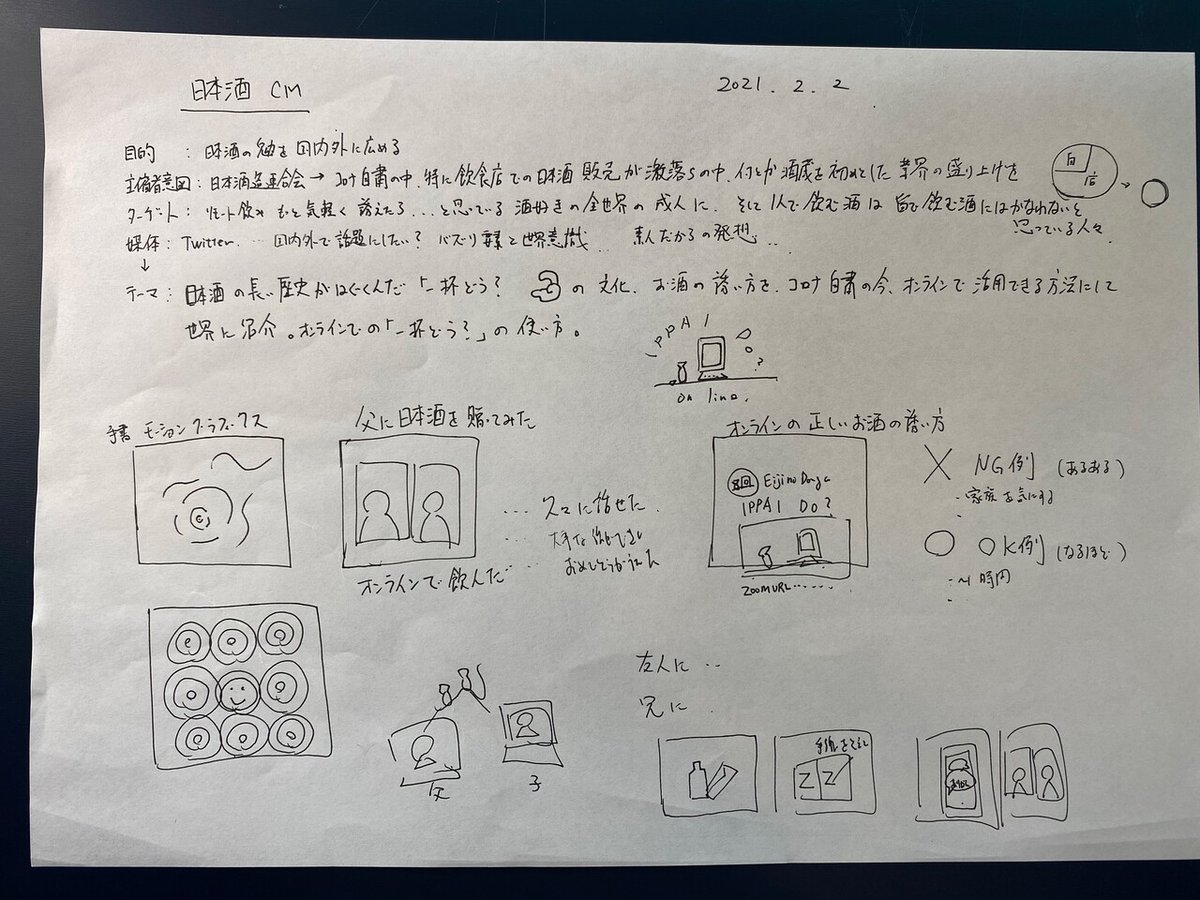 日本酒 CM
2021. 2. 2
目的 : 日本酒の魅を国内外に広める
主催者意図 : 日本酒造連合会 → コロナ自粛の中、特に飲食店での日本酒 販売が激落ちの中、何とか酒蔵を初めとした 業界の盛り上げを
自
店
ターゲット : リモート飲み もっと気軽く誘えたら...と思っている 酒好きの全世界の成人に、そして1人で飲む酒は 皆で飲む酒にはかなわないと
思っている人々
媒体 : Twitter... 国内外で話題にしたい? バズリ要素と世界意識... 素人だからの発想..
↓
テーマ : 日本酒の長い歴史がはぐくんだ「一杯どう? の文化、お酒の誘い方を、コロナ自粛の今、オンラインで活用できる方法にして
世界に紹介。オンラインでの「一杯どう?」の使い方。
IPPAI DO?
on line.
手書 モーショングラフィックス
父に日本酒を贈ってみた
... 久々に話せた
...
...
オンラインで飲んだ
オンラインの正しいお酒の誘い方
Eijino Donya
IPPAI DO?
ZOOM URL......
× NG例 (あるある)
・家族を気にする
○ OK例 (なるほど)
:~1時間
父
子
友人に ..
兄に .
手紙をそえて